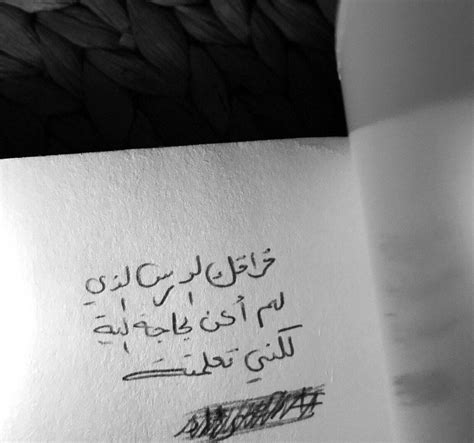 فراقك الدرس الذي
لم أكن بحاجة إلية
لكنني تعلمت